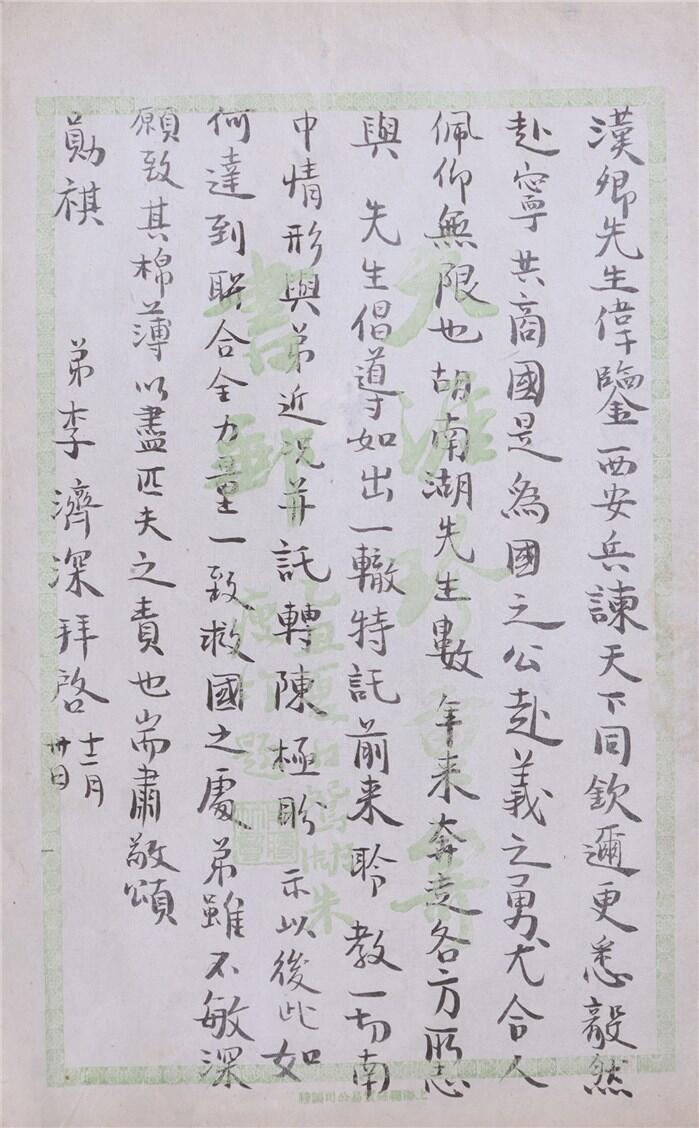 漢卿先生偉鑒西安兵諫天下同欽邇更悉毅然
赴寧共商國是為國之公赴義之勇尤合人
佩仰無限也胡南湖先生數年来奔走各方所志
與 先生倡導如出一轍特託前来聆 教一切南
中情形與弟近況并託轉陳極盼 示以後此如
何達到聯合全力量一致救國之處弟雖不敏深
願致其棉薄以盡匹夫之責也耑肅敬頌
勛祺 弟李濟深拜啓 十二月
卅日
書郵
題